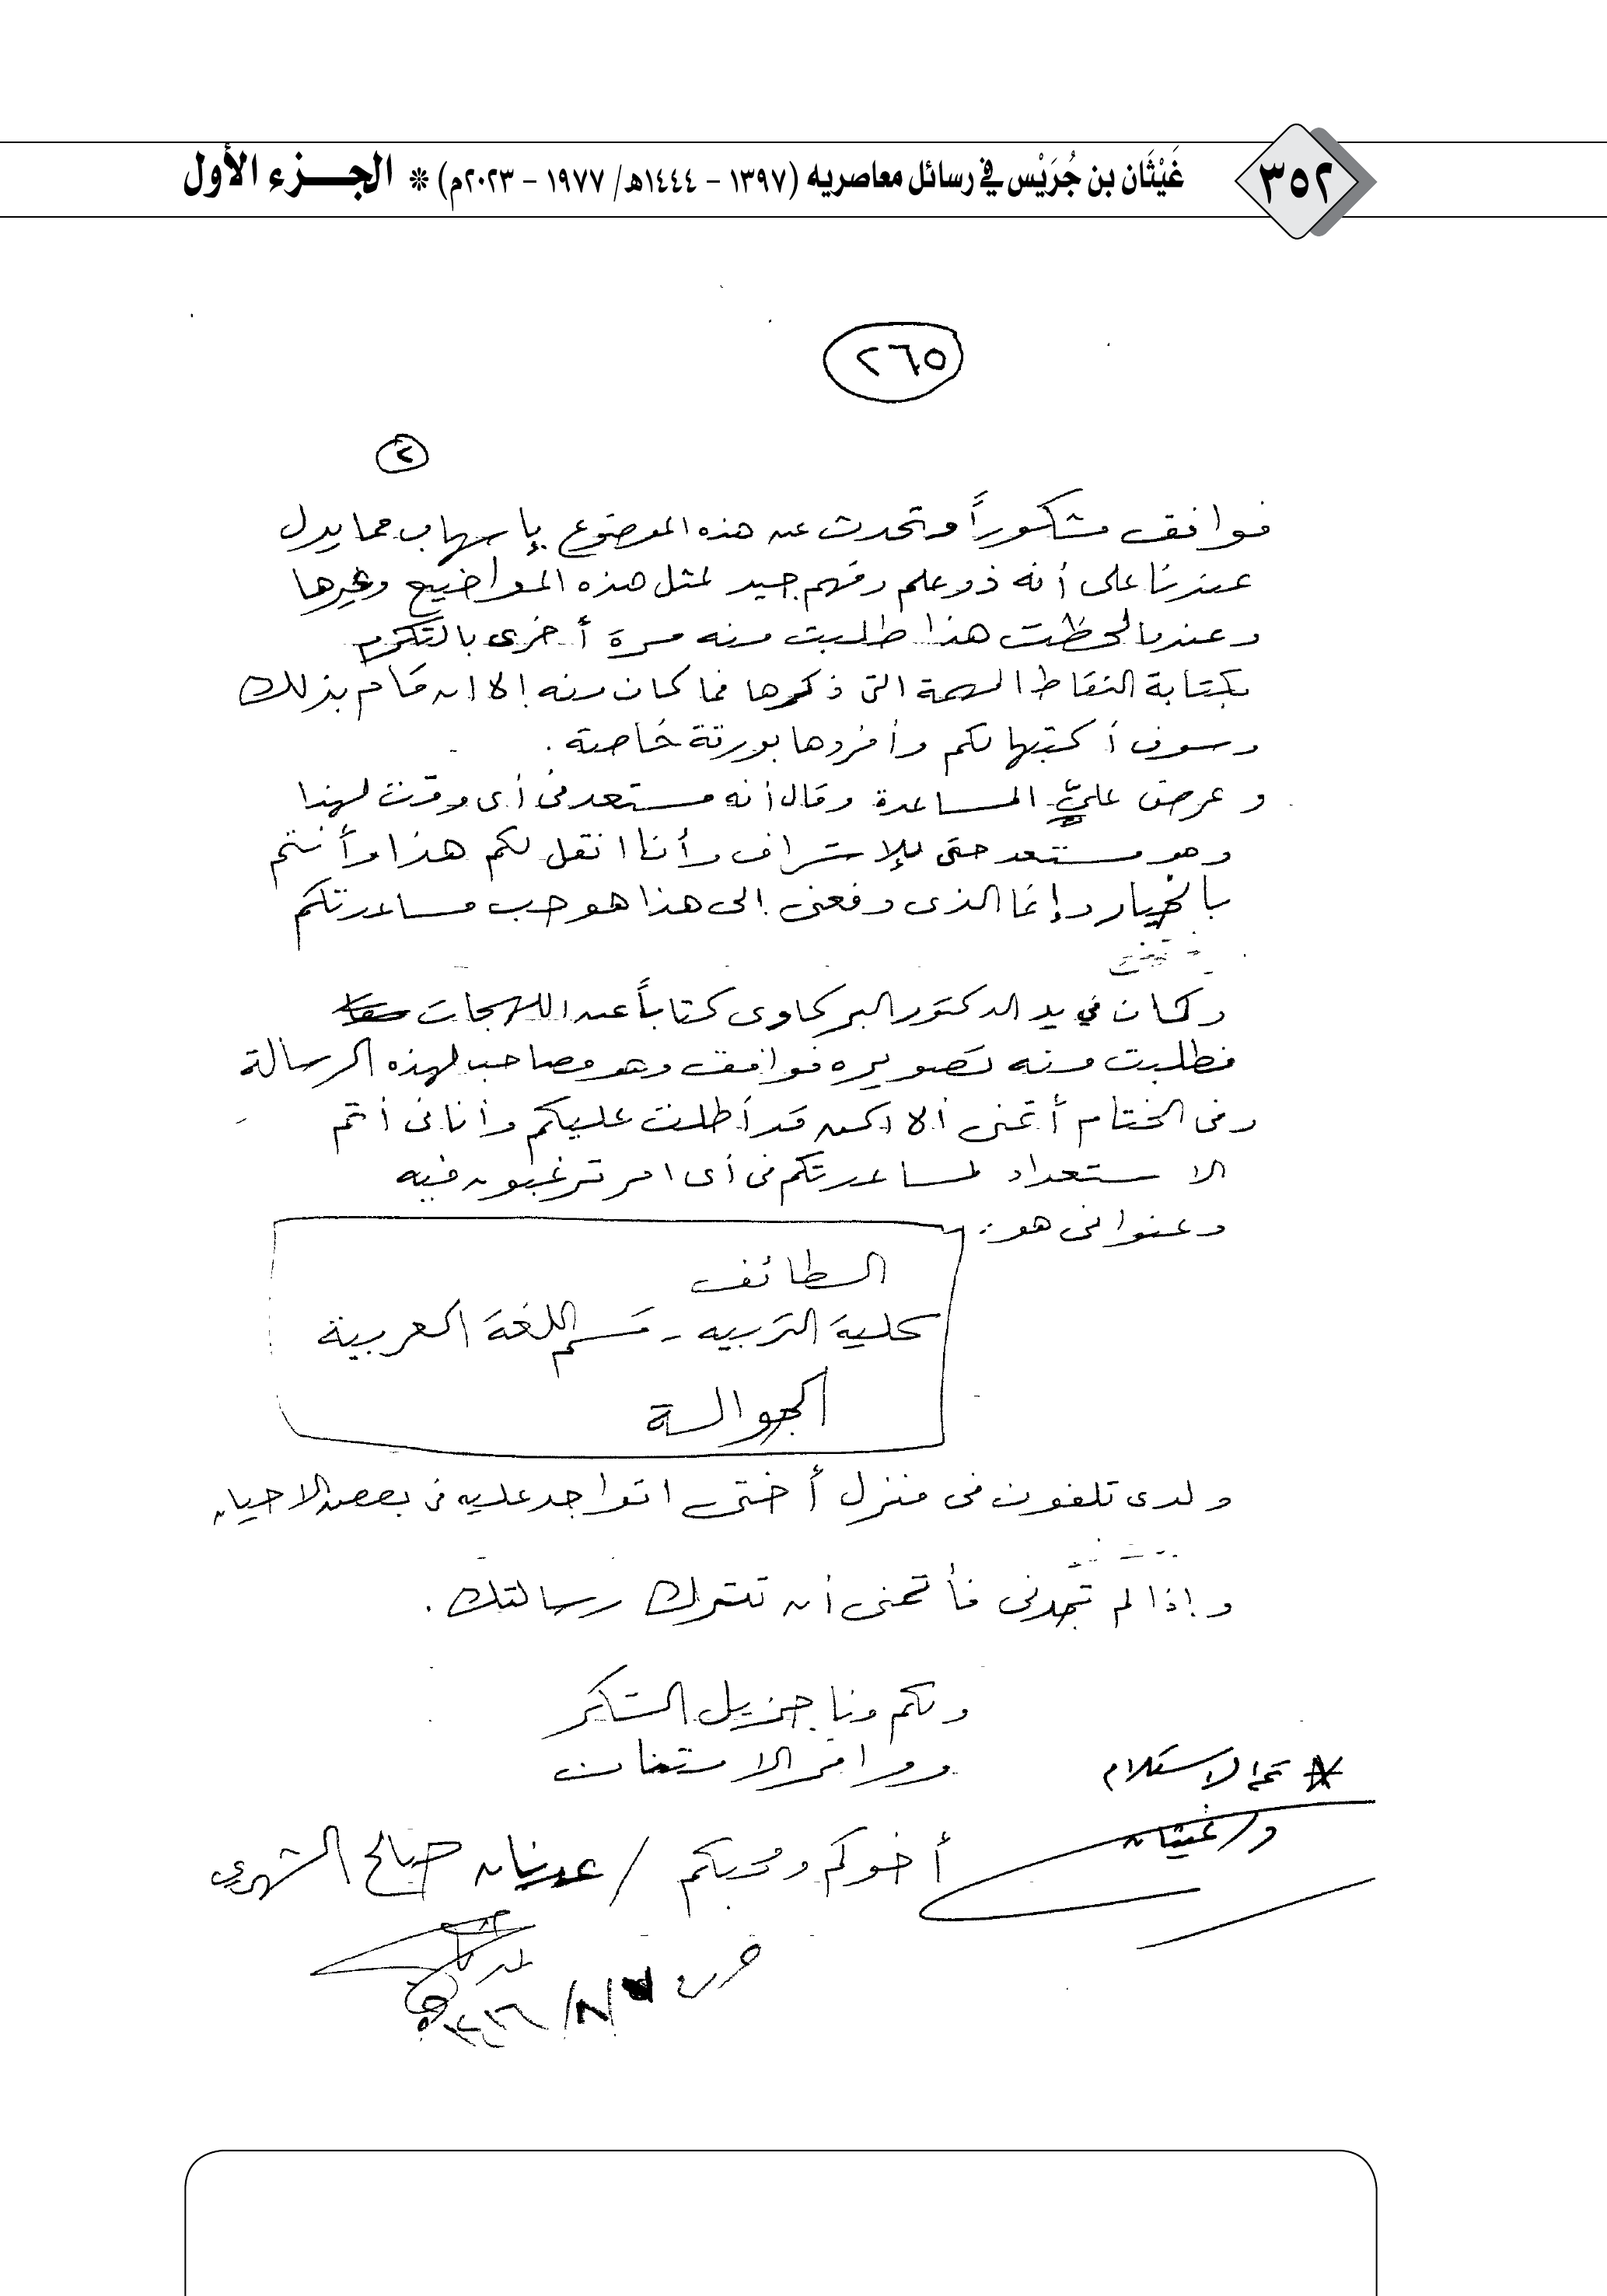 ٣٥٢
غَيْثَان بن جُرَيْس في رسائل معاصريه (١٣٩٧ - ١٤٤٤هـ/ ١٩٧٧ - ٢٠٢٣م) * الجـزء الأول
٢٦٥
٢
فوافق مشكوراً وتحدث عن هذه الموضوع بإسهاب مما يدل
عندنا على أنه ذو علم وفهم جيد لمثل هذه المواضيع وغيرها
وعندما لحظت هذا طلبت منه مرة أخرى بالتكرم
بكتابة النقاط المهمة التي ذكرها فما كان منه إلا ان قام بذلك
وسوف أكتبها لكم وأفردها بورقة خاصة .
وعرض عليَّ المساعدة وقال أنه مستعد في أى وقت لهذا
وهو مستعد حتى للإشراف وأنا انقل لكم هذا وأنتم
بالخيار وإنما الذى دفعنى إلى هذا هو حب مساعدتكم
وكان في يد الدكتور البركاوى كتاباً عن اللهجات
فطلبت منه تصويره فوافق وهو مصاحب لهذه الرسالة
وفى الختام أتمنى ألا اكون قد أطلت عليكم وأنا فى أتم
الاستعداد لمساعدتكم فى أى امر ترغبون فيه
وعنوانى هو :
الطائف
كلية التربيه - قسم اللغة العربية
الجوالة
ولدى تلفون فى منزل أختى اتواجد عليه فى بعض الاحيان
وإذا لم تجدنى فأتمنى أن تترك رسالتك .
ولكم منا جزيل الشكر
ووافر الامتنان
* تم الاستلام
د/ غيثان
أخوكم ومحبكم / عدنان صالح الشهري